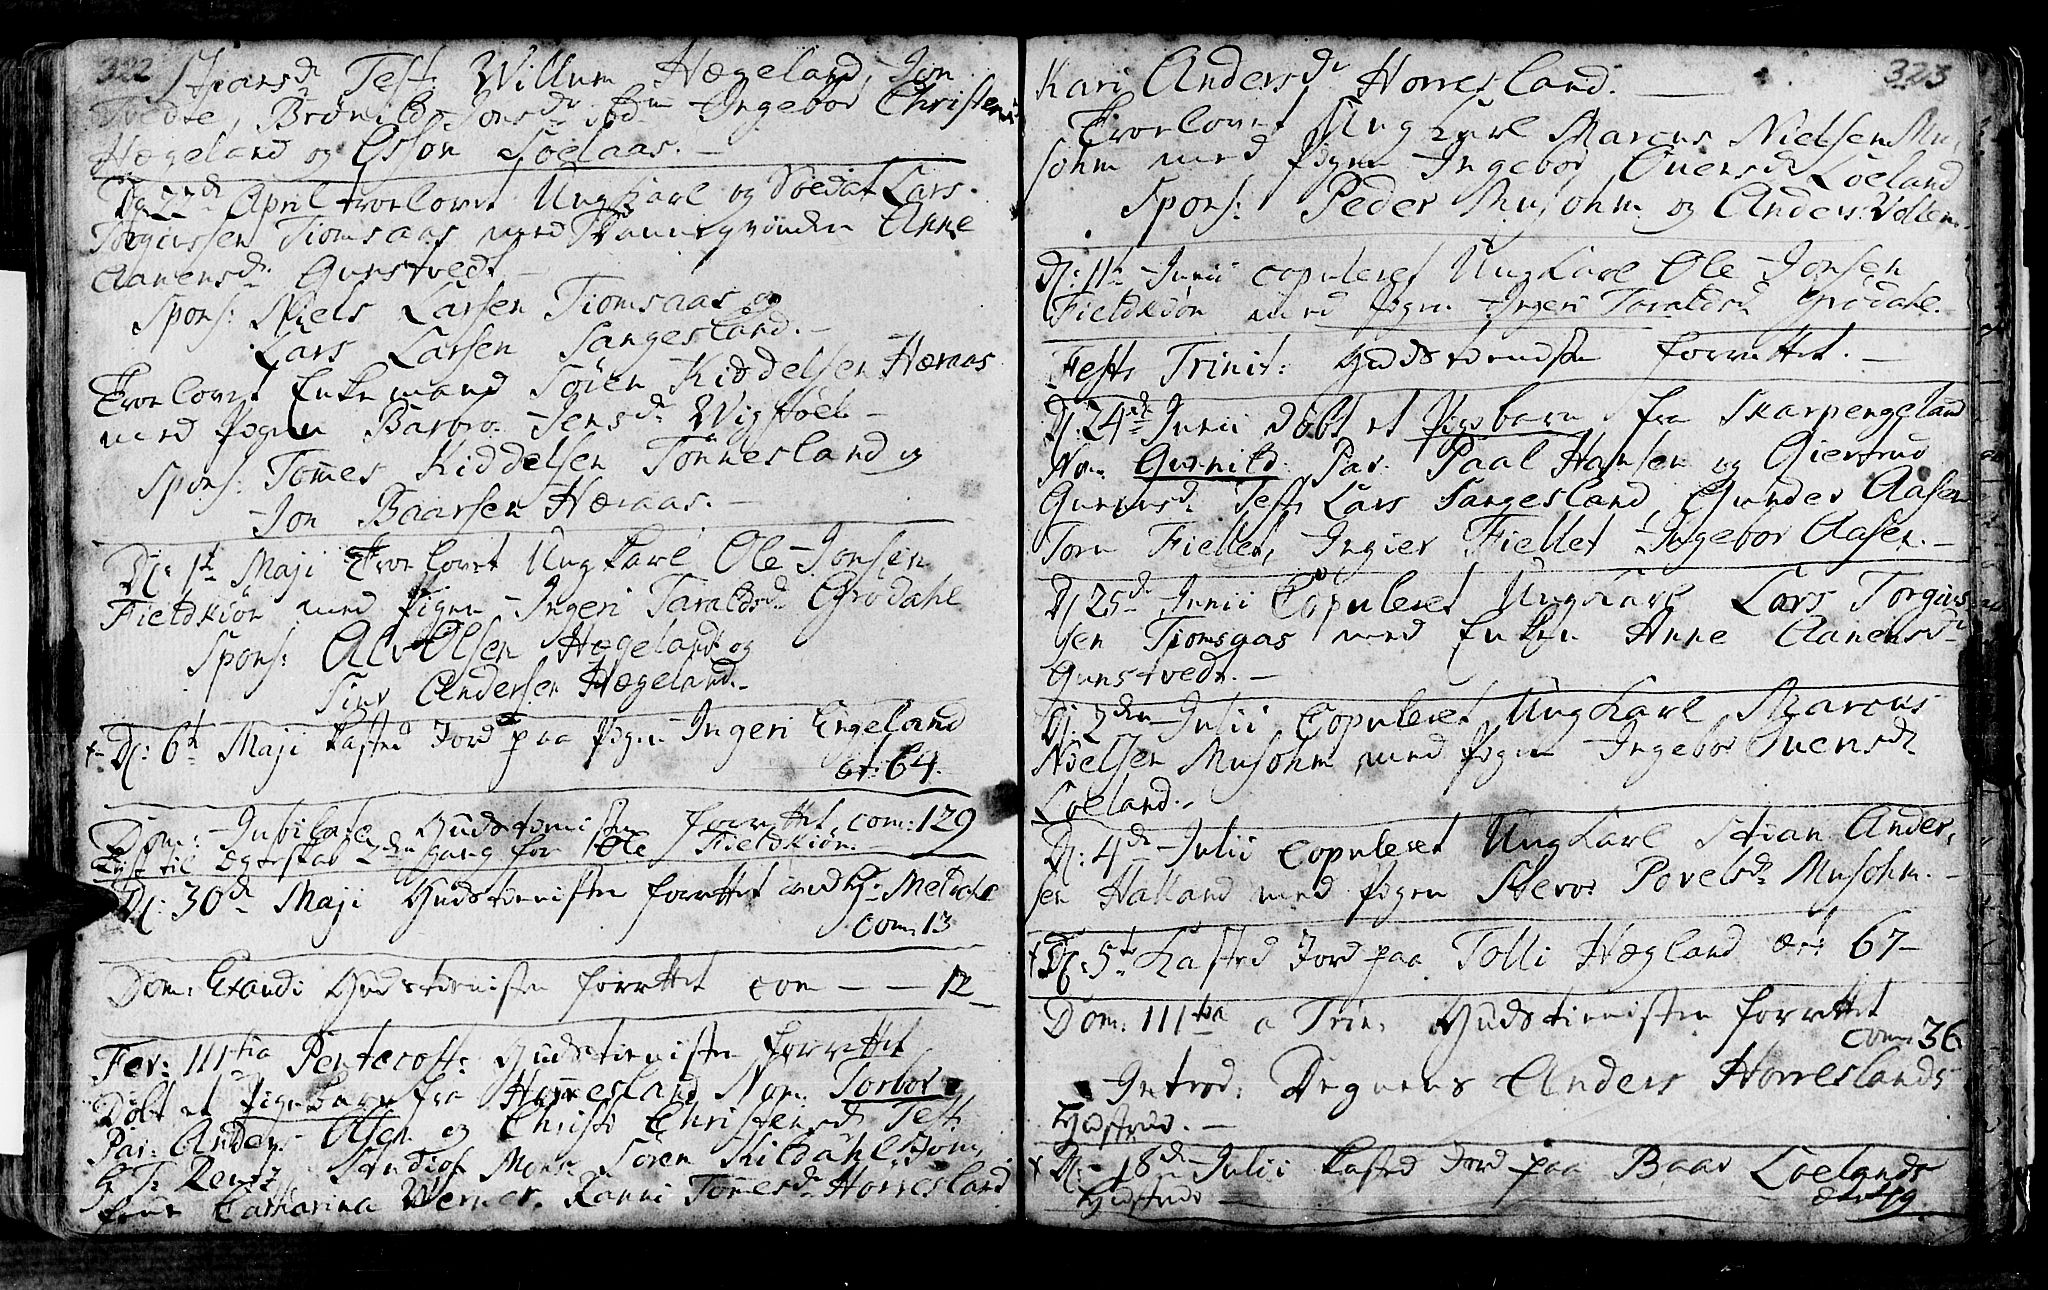 322
Test: Willum Hægeland, Jon
Tvedte, Brønild Jonsdr Ibm Ingebor Christens
Hægeland og Esson Soelaas.
D: 27de April troelovet Ungkarl og Soldat Lars
Torgiussen Tiomsaas med Qvinden Anne
Aanensdr Gunstvedt
Spons: Niels Larsen Tiomsaas og
Lars Larsen Sangesland.
Troelovet Enkemand Sören Kiddelsen Hæraas
med Pigen Barbro Jensdr Wigstöel
Spons: Tom̄es Kiddelsen Tönnesland og
Jon Baarsen Hæraas.
D: 1te Maji Troelovet Ungkarl Ole Jonsen
Fieldkiön med Pigen Ingeri Taraldsdr Grödahl
Spons: Alv Olsen Hægeland og
Siur Andersen Hægeland.
+ D: 6te Maji kasted Jord paa Pigen Ingeri Engeland
æt: 64.
Dom: Jubilate Gudstienisten forrettet com: 129
Lyst til Egteskab 2den gang for Ole Fieldkiön.
D: 30de Maji Gudstienisten forrettet ved Hr
com: 13
Dom: Exaudi Gudstienisten forrettet com — — 12
Fer: IIItia Pentecost: Gudstienisten forrettet
Döbt et Pigebarn fra Horresland Nom: Torbor
Par: Anders Olsen og Christi Christensdr Test:
Studios. Mons: Sören Kildahl
Catharina Werner, Kanni Tom̄esdr Horresland
323
Kari Andersdr Horresland.
Troelovet Ungkarl Marcus Nielsen Mu-
sohm med Pigen Ingebor Ouensdr Loeland
Spons: Peder Musohm og Anders
D: 11te Junii copuleret Ungkarl Ole Jonsen
Fieldkiön med Pigen Ingeri Taraldsdr Grödahl.
Festo Trinit: Gudstienisten forrettet.
D: 24de Junii döbt et Pigebarn fra Skarpengeland
Nom: Gunild Par: Paal Hansen og Giertrud
Gunersdr Test: Lars Sangesland, Gunder Aasen
Torn Fiellet, Ingier Fiellet Ingebor Aasen.
D: 25de Junii Copuleret Ungkarl Lars Torgius-
sen Tiomsaas med Enken Anne Aanensdr
Gunstvedt.
D: 2den Julii Copuleret Ungkarl Marcus
Nielsen Musohm med Pigen Ingebor Ouensdr
Loeland.
D: 4de Julii Copuleret Ungkarl Stian Ander-
sen Halland med Pigen Povelsdr Musohm.
+ D: 5te Kasted Jord paa Tolli Hægland æt: 67
Dom: IIItia a Trin: Gudstienisten forrettet
com: 36
Introd: Degnens Anders Horreslands
Hustrue.
+ D: 18de Julii kasted Jord paa Baar Loelands
Hustrue æt: 49